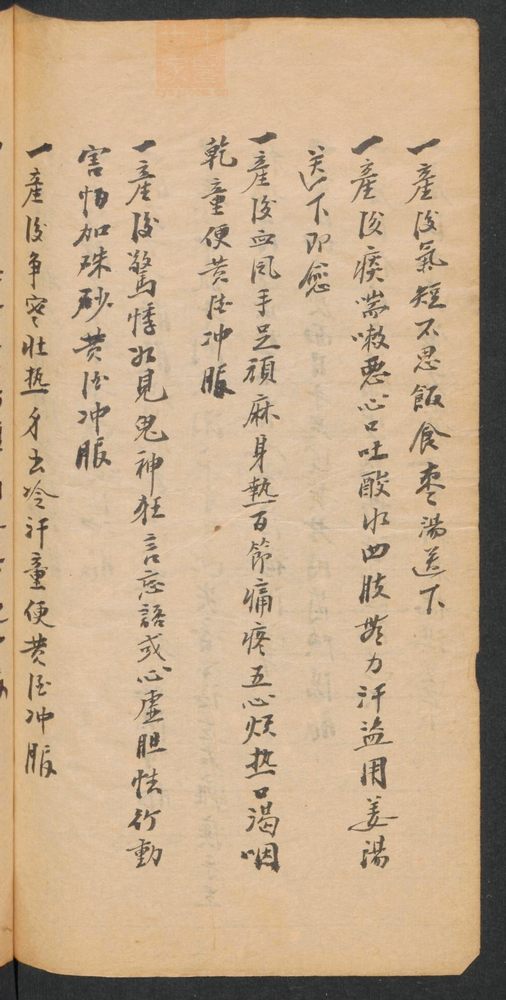 一產後氣短不思飯食枣湯送下
一產後痰喘嗽惡心口吐酸水四肢無力汗盗用姜湯
送下即愈
一產後血風手足頑麻身热百節痛疼五心烦热口渴咽
乾童便黄酒冲服
一產後驚悸如見鬼神狂言忘語或心虚胆怯行動
害怕加硃砂黄酒冲服
一產後身寒壮热身出冷汗童便黄酒冲服